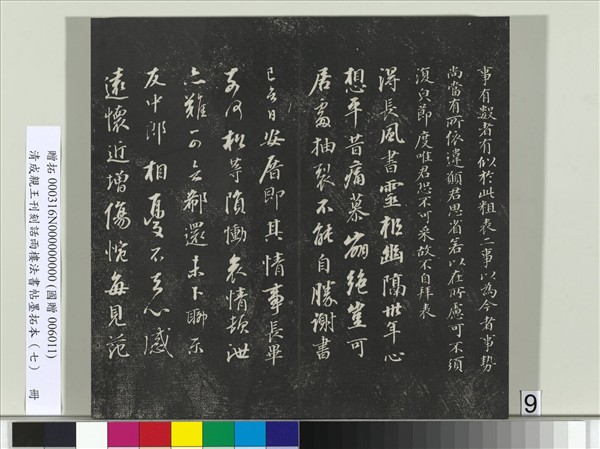 事有數者有似於此粗表二事以為今者事勢
尚當有所依違願君思省若以在所慮可不須
復白節度唯君恐不可采故不自拜表
得長風書靈柩幽隔卅年心
想平昔痛慕崩絕豈可
居處抽裂不能自勝謝書
已至日安厝即其情事長畢
奈何松等隕慟哀情頓泄
亦難可言鄰還未卜聊示
友中郎相憂不去心感
遠懷近增傷惋每見范
贈拓 000316N000000000 (國贈 006011)
清成親王刊刻話雨樓法書帖墨拓本(七) 冊
9